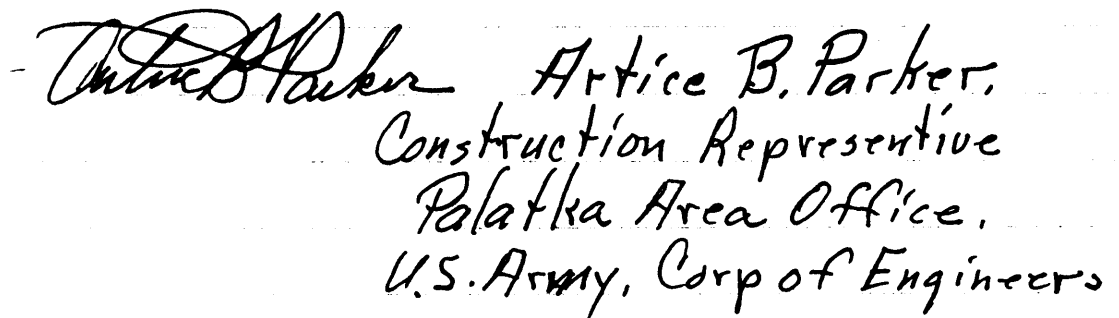 Artice B Parker Artice B. Parker,
Construction Representive
Palatka Area Office,
U.S. Army, Corp of Engineers